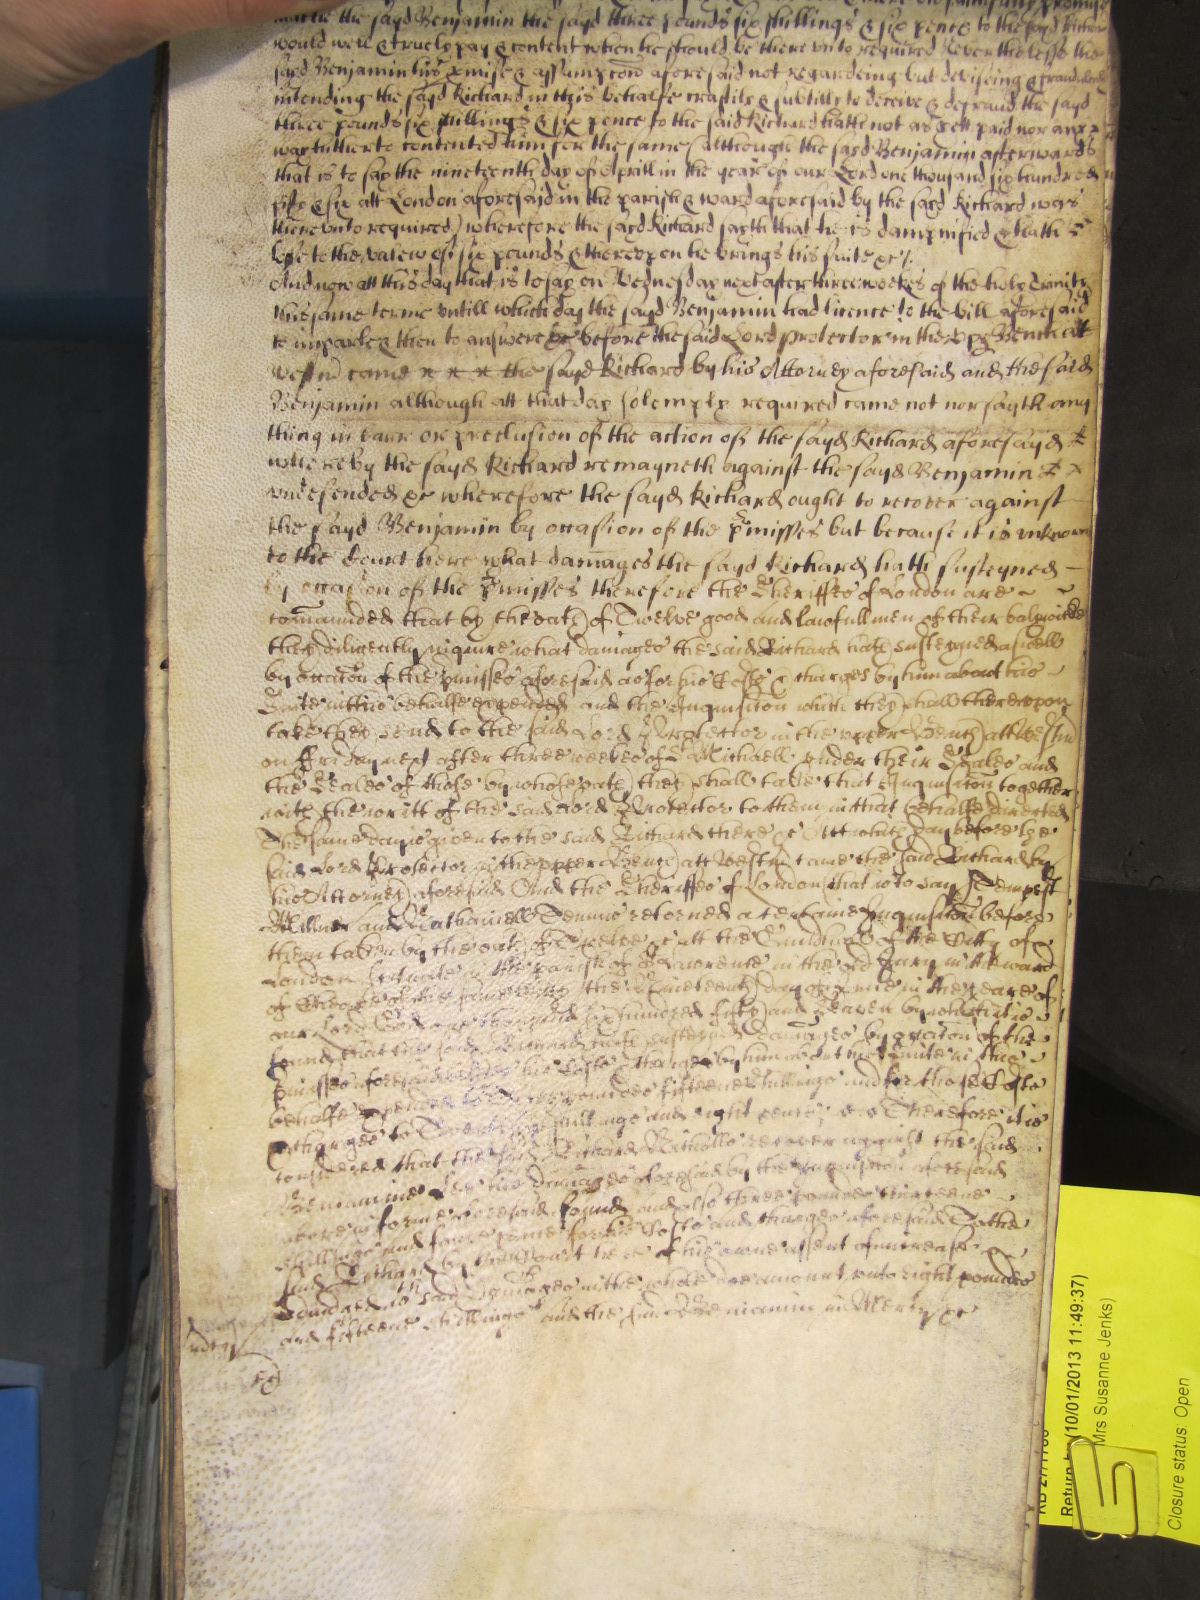 matie the sayd Benjamin the sayd three pounds six shillings & six pence to the sayd Richard
would well & truely pay & content when he should be there vnto required Neverthelesse the
sayd Benjamin his pmise & assumpcon aforesaid not regardeing but deviseing & fraudulently
intending the sayd Richard in this behalfe craftily & subtilly to deceive & defraud the sayd
three pounds six shillings & six pence to the said Richard hath not as yett paid nor any
way hitherto contented him for the same (although the sayd Benjamin afterwards
that is to say the nineteenth day of Aprill in the yeare of our Lord one thousand six hundred
fifty & six att London aforesaid in the parish & ward aforesaid by the sayd Richard was
there vnto required) wherefore the sayd Richard sayth that he is dampnified & hath
losse to the valew of six pounds & therevpon he brings his suite &c
And now att this day that is to say on Wednesday next after three weekes of the holy Trinity
this same terme vntill which day the sayd Benjamin had licence to the bill aforesaid
to imparle & then to answere &c before the said Lord Protector in the vpp Bench att
Westm came the sayd Richard by his Attorney aforesaid and the said
Benjamin although att that day solemply required came not nor sayth any
thing in barr or preclusion of the action of the sayd Richard aforesayd
whereby the sayd Richard remayneth against the sayd Benjamin
vndefended &c wherefore the sayd Richard ought to recover against
the sayd Benjamin by occasion of the pmisses but because it is vnknown
to the Court here what damages the sayd Richard hath susteyned
by occasion of the pmisses therefore the Sheriffes of London are
comaunded that by the oath of Twelve good and lawfull men of their balywicke
they diligently inquire what damages the said Richard hath susteyned aswell
by occacon of the pmisses aforesaid as for his Costs & charges by him about his
Suite in this behalfe expended and the Inquisicon which they shall therevpon
take they send to the said Lord Protector in the vpper Bench att Westm
on Friday next after three weekes of St Michaell vnder their Seales and
the Seales of those by whose oath they shall take that Inquisicon together
with the writt of the said Lord Protector to them in that behalfe directed
The same day is given to the said Richard there &c Att which day before the
said Lord Protector in the vpper Bench att Westm came the said Richard by
his Attorney aforesaid And the Sheriffes of London that is to say Tempest
Millner and Nathaniell Temms retorned a certaine Inquisicon before
them taken by the oath of Twelve &c att the Guildhall of the Citty of
London scituate in the parish of St Laurence in the old Jury in the ward
of Cheape of the same Citty the Nineteenth day of June in the yeare of
our Lord God one thousand six hundred fifty and seaven by which it is
found that the said Richard hath susteyned damages by occacon of the
pmisses aforesaid besides his Costs & charges by him about his Suite in this
behalfe expended to three pounds fifteene shillings and for those Costs
& charges to Twenty six shillings and eight pence Therefore it is
considered that the said Richard Nicholls recover against the said
Beniamine his damages aforesaid by the Inquisicon aforesaid
above in forme aforesaid found and also three pounds thirteene
shillings and foure pence for his Costs and charges aforesaid To the
said Richard by the Court here of his owne assent of increase
adiudged wch said damages in the whole doe amount vnto eight pounds
and fifteene shillings and the said Beniamin in Mercy &c
KB 27/1786
Return by (10/01/2013 11:49:37)
Mrs Susanne Jenks)
Closure status: Open